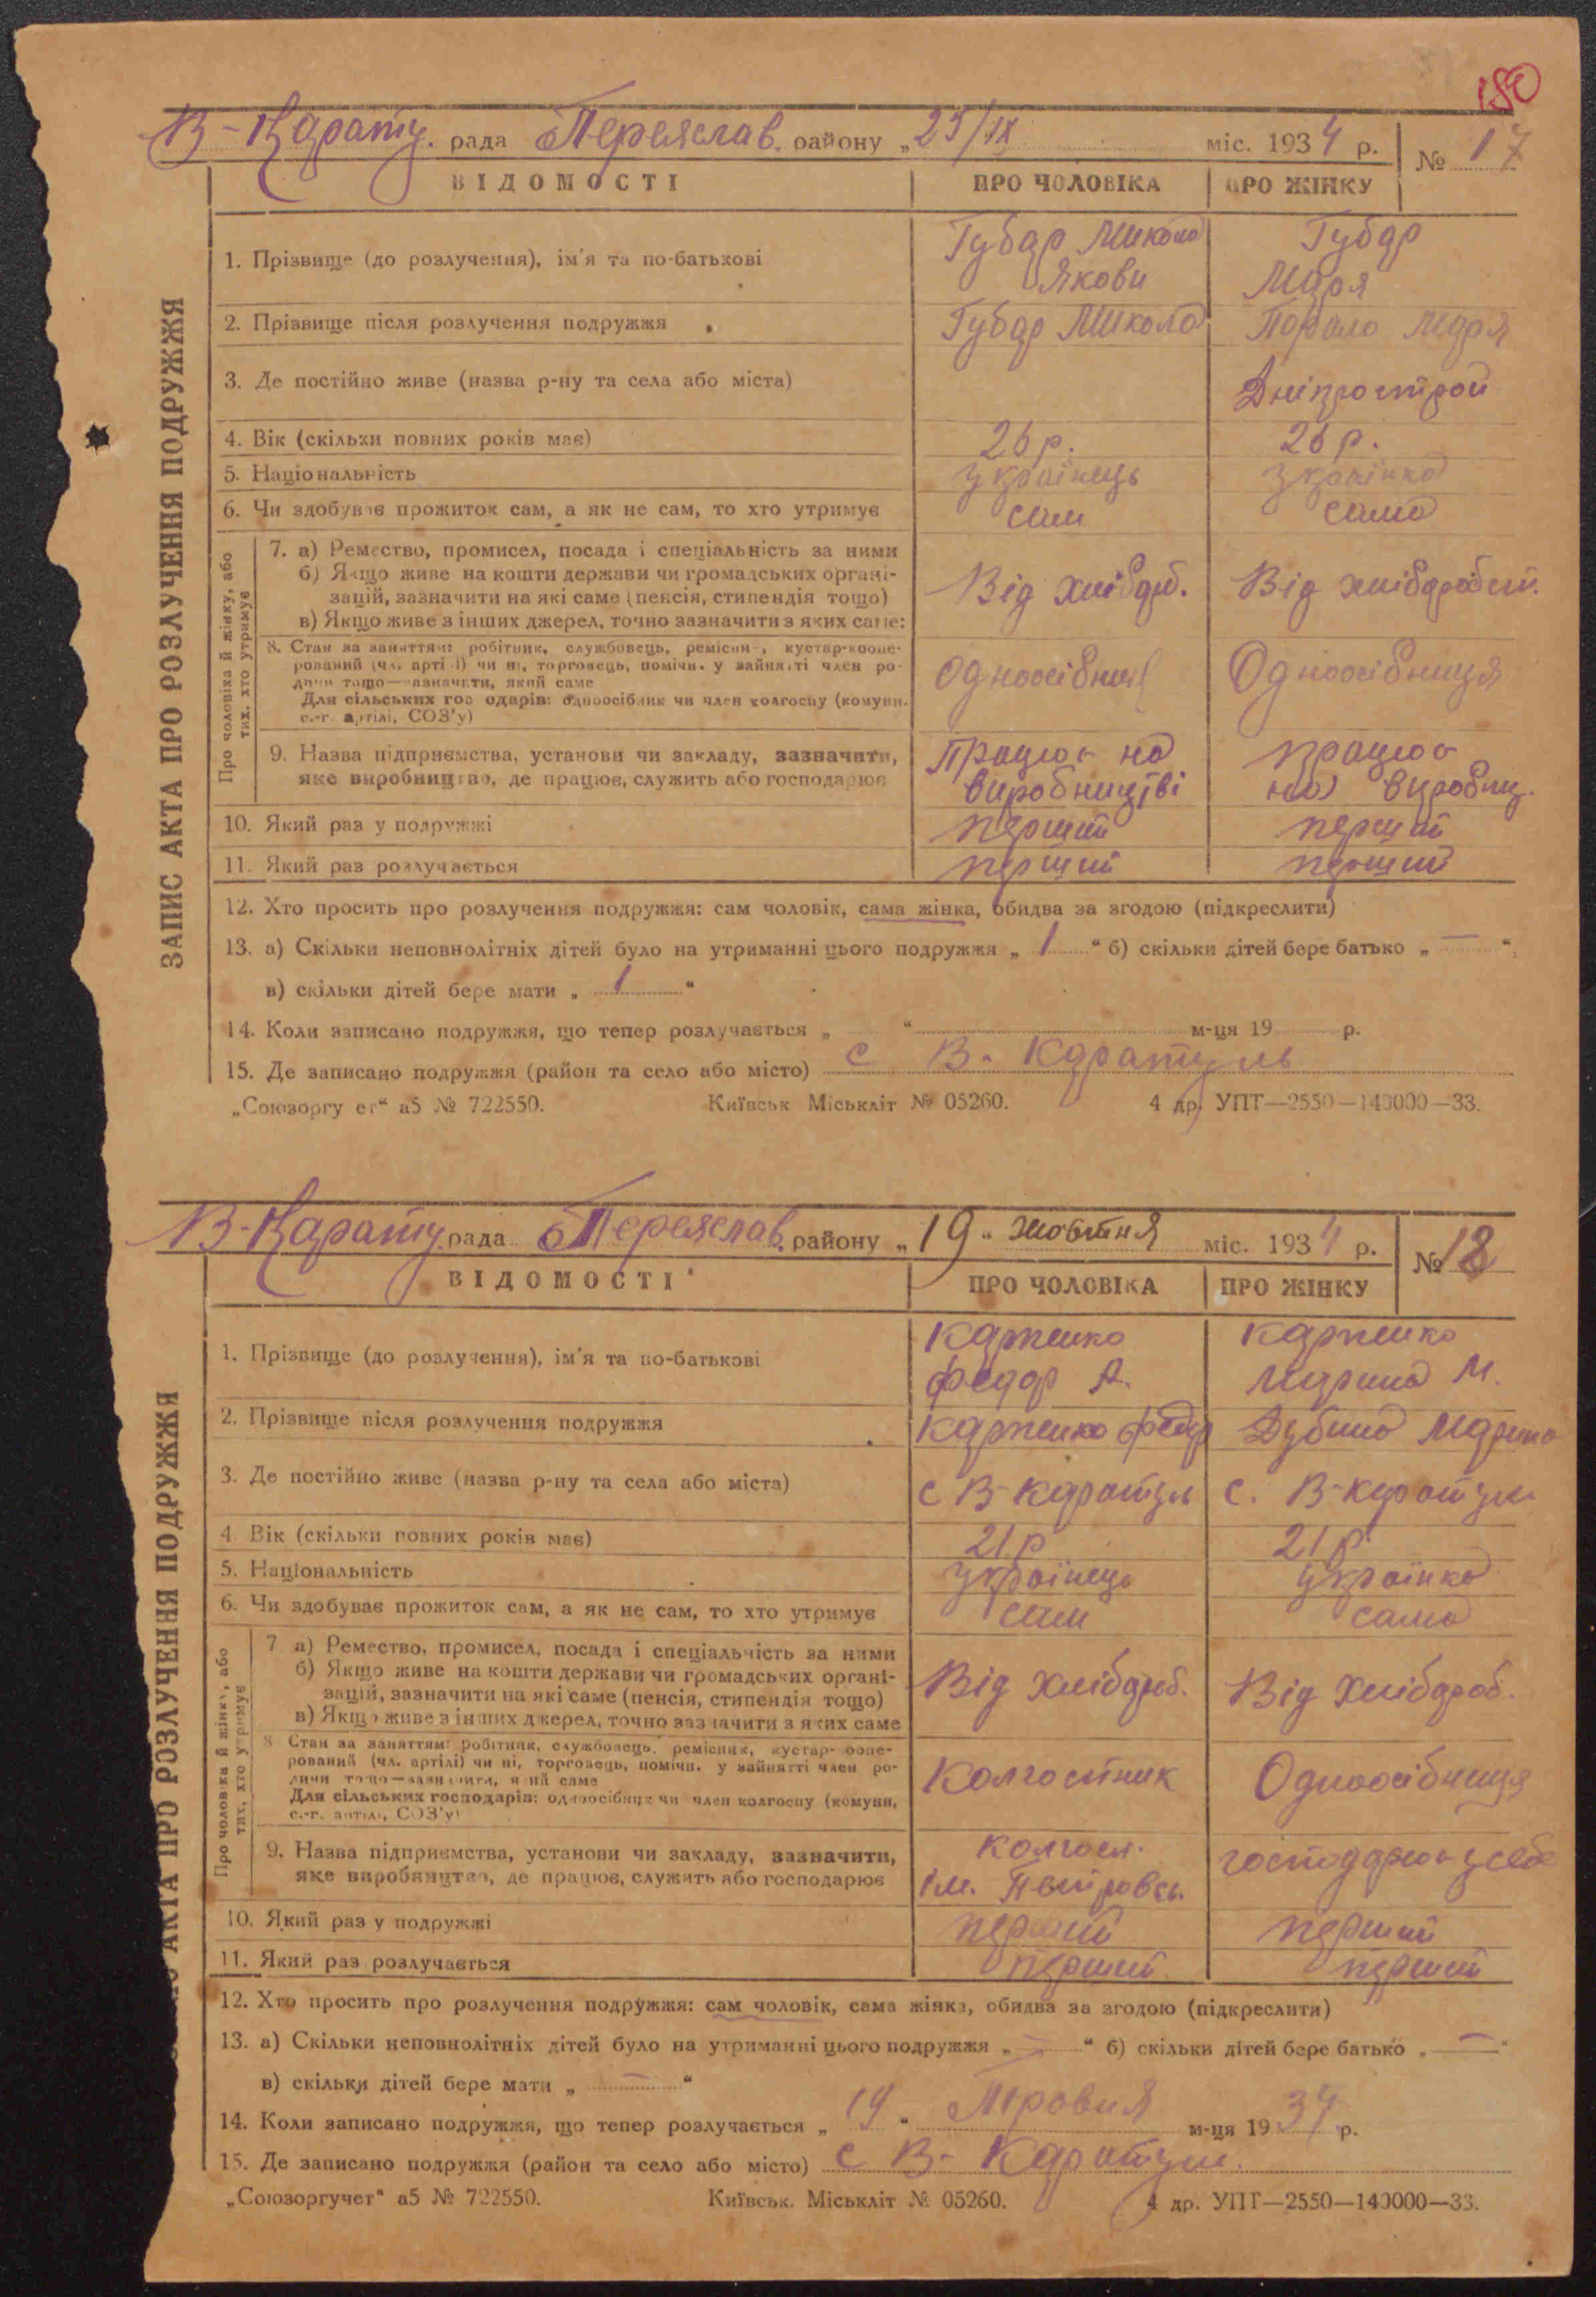 180
В-Карату. рада Переяслав. району „ 25/ІХ міс. 1934 р. № 17
ВІДОМОСТІ ПРО ЧОЛОВІКА ПРО ЖІНКУ
ЗАПИС АКТА ПРО РОЗЛУЧЕННЯ ПОДРУЖЖЯ
1. Прізвище (до розлучення), ім'я та по-батькові Губар Микола Губар
Якови Марія
2. Прізвище після розлучення подружжя Губар Микола Марія
3. Де постійно живе (назва р-ну та села або міста) Дніпрострой
4. Вік (скільки повних років має) 26 р. 26 р.
5. Національність українець українка
6. Чи здобуває прожиток сам, а як не сам, то хто утримує сам сама
Про чоловіка й жінку, або
тих, хто утримує
7. а) Ремество, промисел, посада і спеціальність за ними
б) Якщо живе на кошти держави чи громадських органі-
зацій, зазначити на які саме (пенсія, стипендія тощо) Від хлібороб. Від хлібороб.
в) Якщо живе з інших джерел, точно зазначити з яких саме:
8. Стан за заняттям: робітник, службовець, ремісник, кустар-коопе-
рований (чл. артілі) чи ні, торговець, помічн. у зайнятті член ро-
дини тощо—зазначити, який саме Одноосібник Одноосібниця
Для сільських господарів: одноосібник чи член колгоспу (комуни,
с.-г. артілі, СОЗ'у)
9. Назва підприємства, установи чи закладу, зазначити, Працює на працює
яке виробництво, де працює, служить або господарює виробництві на виробниц.
10. Який раз у подружжі перший перший
11. Який раз розлучається перший перший
12. Хто просить про розлучення подружжя: сам чоловік, сама жінка, обидва за згодою (підкреслити)
13. а) Скільки неповнолітніх дітей було на утриманні цього подружжя „ 1 “ б) скільки дітей бере батько „ — “,
в) скільки дітей бере мати „ 1 “
14. Коли записано подружжя, що тепер розлучається „ “ м-ця 19 р.
15. Де записано подружжя (район та село або місто) с В. Каратуль
„Союзоргучет“ а5 № 722550. Київськ Міськліт № 05260. 4 др. УПТ—2550—140000—33.
В-Карату. рада Переяслав. району „ 19 “ жовтня міс. 1934 р. № 18
ВІДОМОСТІ ПРО ЧОЛОВІКА ПРО ЖІНКУ
ЗАПИС АКТА ПРО РОЗЛУЧЕННЯ ПОДРУЖЖЯ
1. Прізвище (до розлучення), ім'я та по-батькові
Федор А. Марина М.
2. Прізвище після розлучення подружжя Федор Дубина Марина
3. Де постійно живе (назва р-ну та села або міста) с В-Каратул с. В-Каратул
4 Вік (скільки повних років має) 21 р 21 р
5. Національність українець українка
6. Чи здобуває прожиток сам, а як не сам, то хто утримує сам сама
Про чоловіка й жінку, або
тих, хто утримує
7 а) Ремество, промисел, посада і спеціальність за ними
б) Якщо живе на кошти держави чи громадських органі-
зацій, зазначити на які саме (пенсія, стипендія тощо) Від хлібороб. Від хлібороб.
в) Якщо живе з інших джерел, точно зазначити з яких саме
8 Стан за заняттям: робітник, службовець, ремісник, кустар-коопе-
рований (чл. артілі) чи ні, торговець, помічн. у зайнятті член ро-
дини тощо—зазначити, який саме Колгостник Одноосібниця
Для сільських господарів: одноосібник чи член колгоспу (комуни,
с.-г. артілі, СОЗ'у)
9. Назва підприємства, установи чи закладу, зазначити, колгосп. господарює у себе
яке виробництво, де працює, служить або господарює ім. Петровск.
10. Який раз у подружжі перший перший
11. Який раз розлучається перший перший
12. Хто просить про розлучення подружжя: сам чоловік, сама жінка, обидва за згодою (підкреслити)
13. а) Скільки неповнолітніх дітей було на утриманні цього подружжя „ — “ б) скільки дітей бере батько „ — “
в) скільки дітей бере мати „ — “
14. Коли записано подружжя, що тепер розлучається „ 19 “ м-ця 1934 р.
15. Де записано подружжя (район та село або місто) с В- Каратул.
„Союзоргучет“ а5 № 722550. Київськ. Міськліт № 05260. 4 др. УПТ—2550—140000—33.